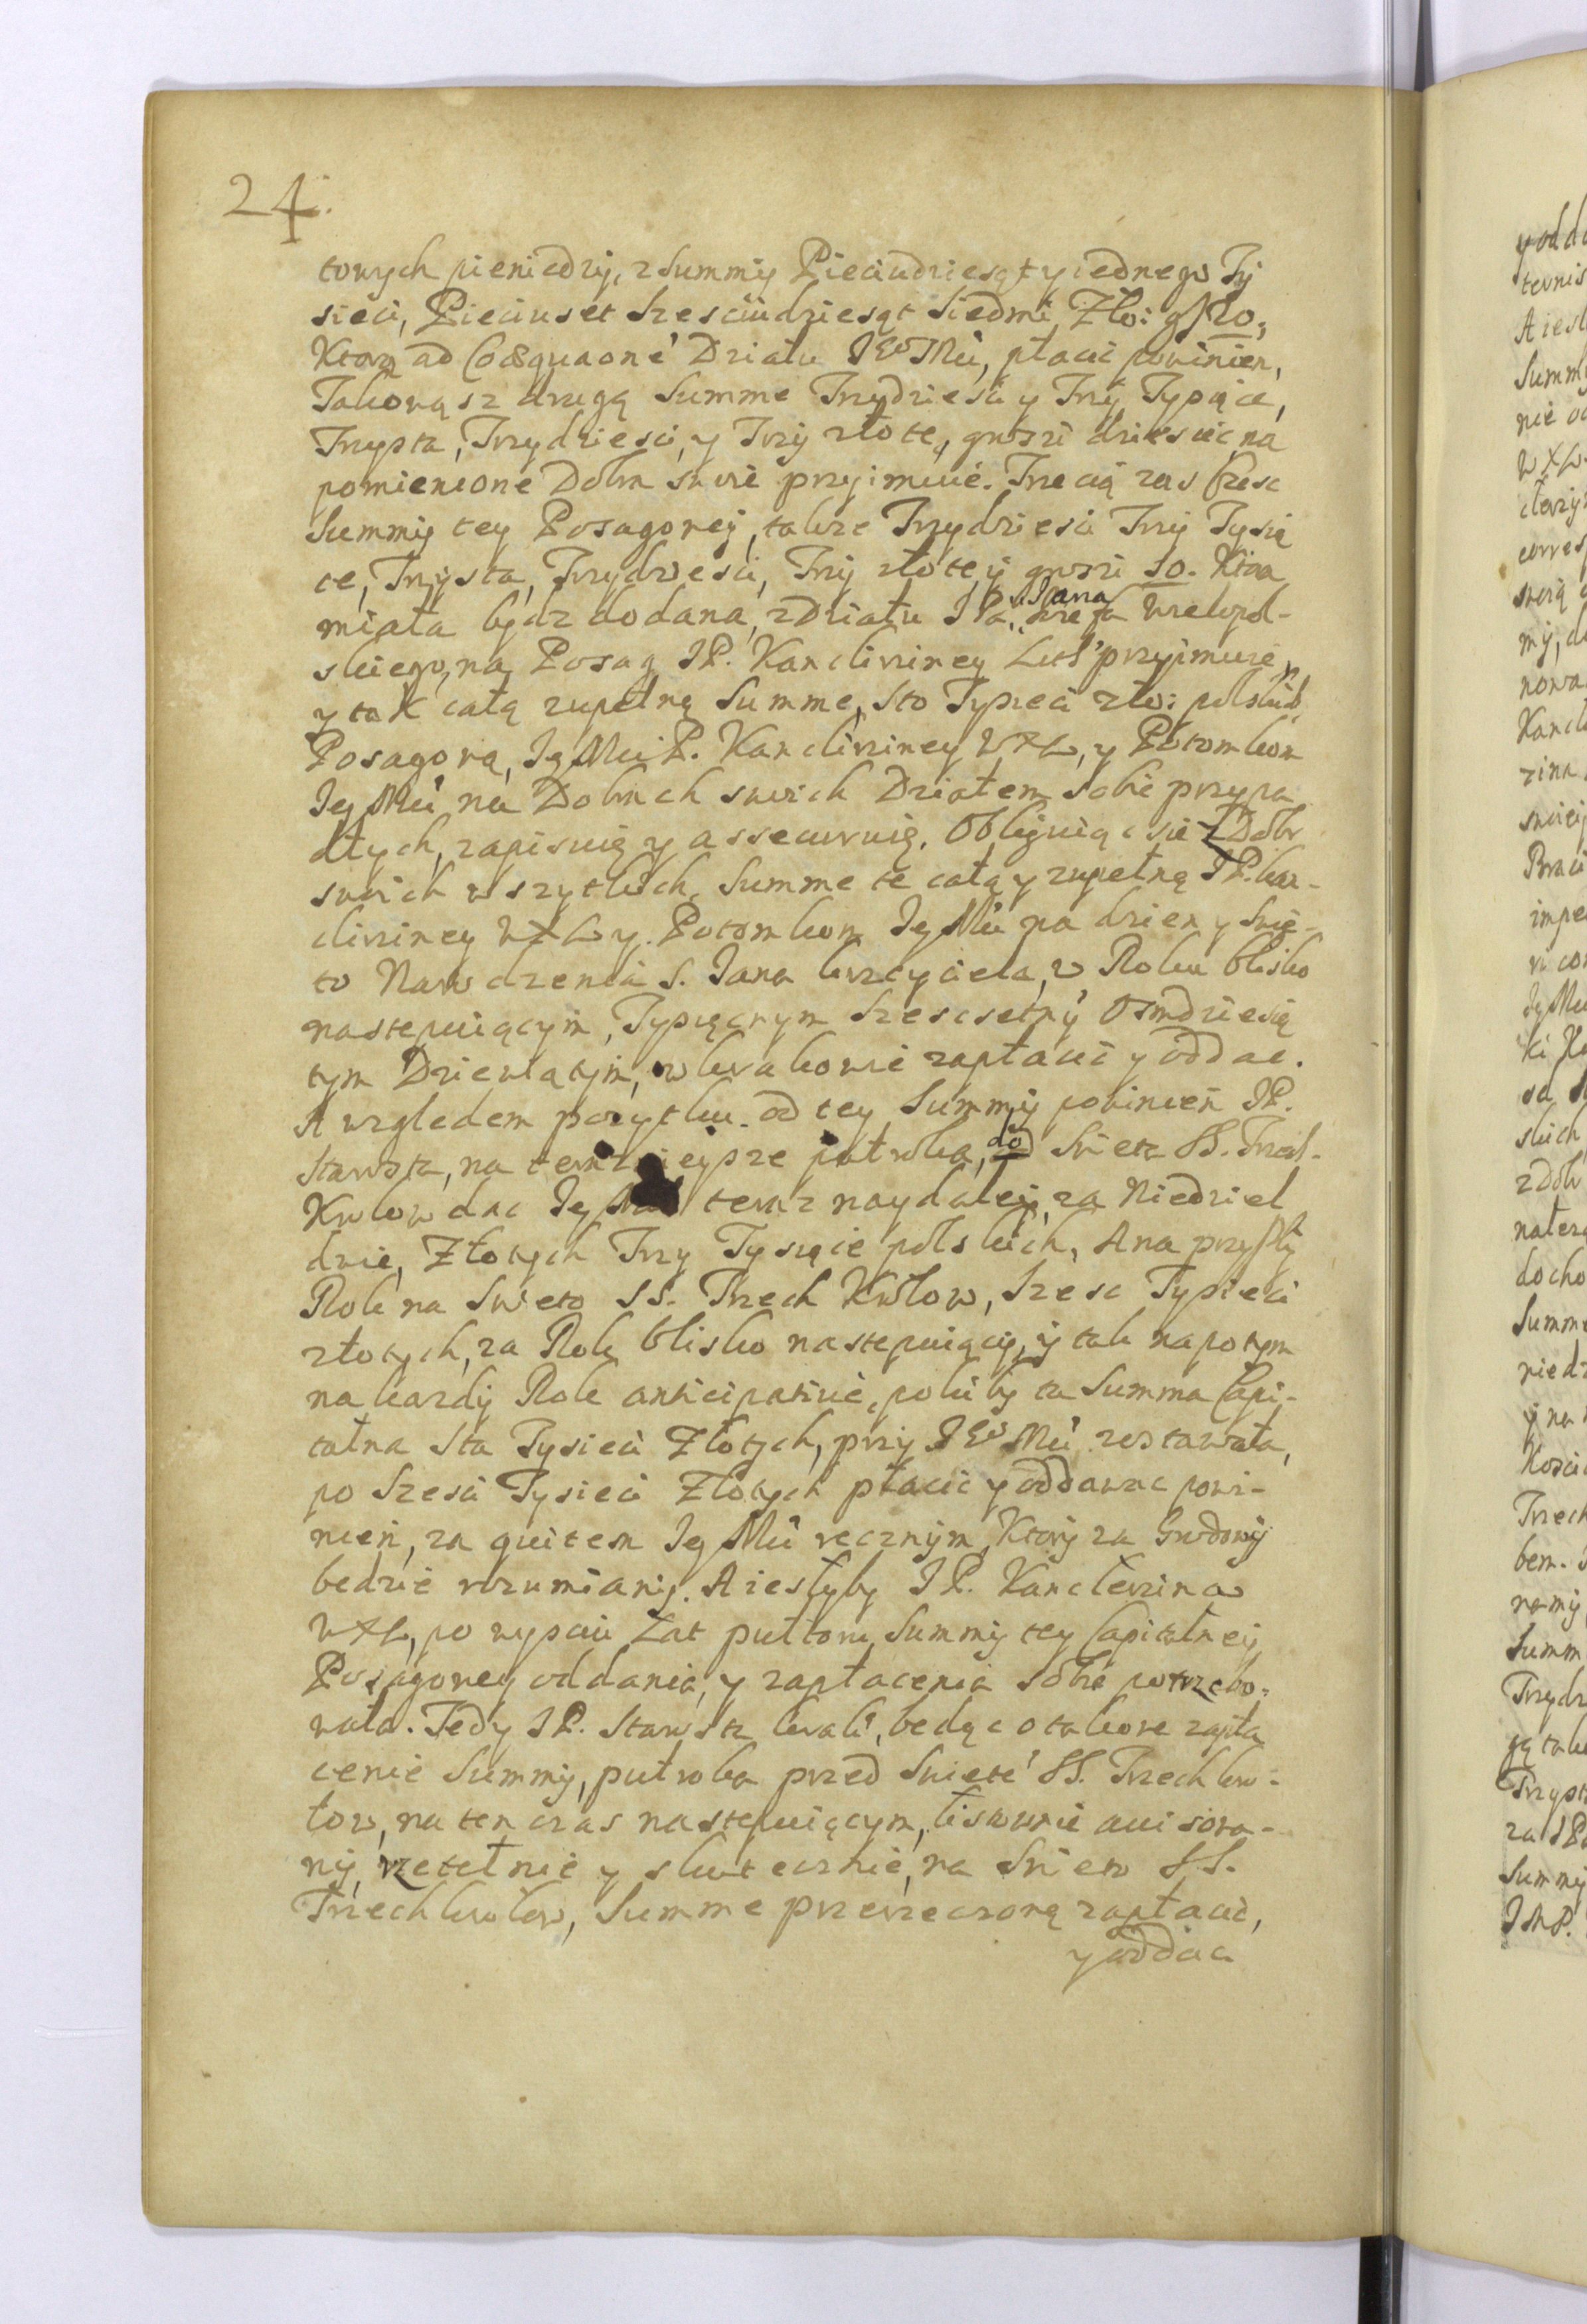 24.
towych pieniedzy, z Summy Pieciudziesąt y iednego Ty
sieci, Pieciuset Szesciudziesąt Siedmi Zło: gr 20,
Ktorą ad Coæquaone Działu JEo Mći, płacic powinien,
Takowąsz drugą Summe Trzydziesci y Trzy Tysiące,
Trzysta, Trzydziesci, y Trzy złote, groszi dziesiec, na
pomienione Dobra swoie przyimuie. Trzecią zas Czesc
Summy tey Posagowey, takze Trzydziesci Trzy Tysią
ce, Trzysta, Trzydziesci, Trzy złote y groszi 10. Ktora
miała bydz dodana, z Działu JPa. Jozefa Wielopol-
a Jana
skiego, na Posag JP. Kanclirziney Lit. przyimuie,
y tak całą zupełną Summe, Sto Tysieci zło: polskich,
Posagową, Jey Mći P. Kanclirziney WXL, y Potomkom
Jey Mći, na Dobrach swoich Działem sobie przypa
dłych, zapisuię y assecuruię. Obliguiąc sie z Dobr
swoich wszytkich, Summe te całą y zupełną JP. kan-
clirziney WXL y Potomkom Jey Mći na dzien y Swie-
to Narodzenia S. Jana krzciciela, w Roku blisko
nastepuiącym, Tysiącnym Szescsetny Osmdziesią
tym Dziewiątym, w krakowie zapłacic y oddac.
A wzgledem pozytku od tey Summy powinien JP.
Starosta, na teraznieysze putroka, do Swieta SS. Trzech
Krolow dac Jey Mći teraz naydaley, za Niedziel
dwie, Złotych Trzy Tysiące polskich, A na przyszły
Rok na Swieto SS. Trzech Krolow, Szesc Tysieci
złotych, za Rok blisko nastepuiący, y tak napotym
na kazdy Rok anticipative, pokiby ta Summa Capi-
talna Sta Tysieci Złotych, przy JEo Mći zostawała,
po Szesci Tysieci Złotych płacic y oddawac powi-
nien, za quitem Jey Mći recznym, Ktory za Grodowy
bedzie rozumiany. A iesłyby JP. Kanclerzina
WXL, po wysciu Lat pułtoru, Summy tey Capitalney
Posagowey oddania, y zapłacenia sobie potrzebo-
wała. Tedy JP. Starosta krak., bedąc o takowe zapła
cenie Summy, putroka przed Swiete SS. Trzech kro-
low, na ten czas nastepuiącym, listownie avisowa-
ny, rzetelnie y skutecznie, na Swieto SS.
Trzech krolow, Summe przerzeczoną zapłacic,
y oddac